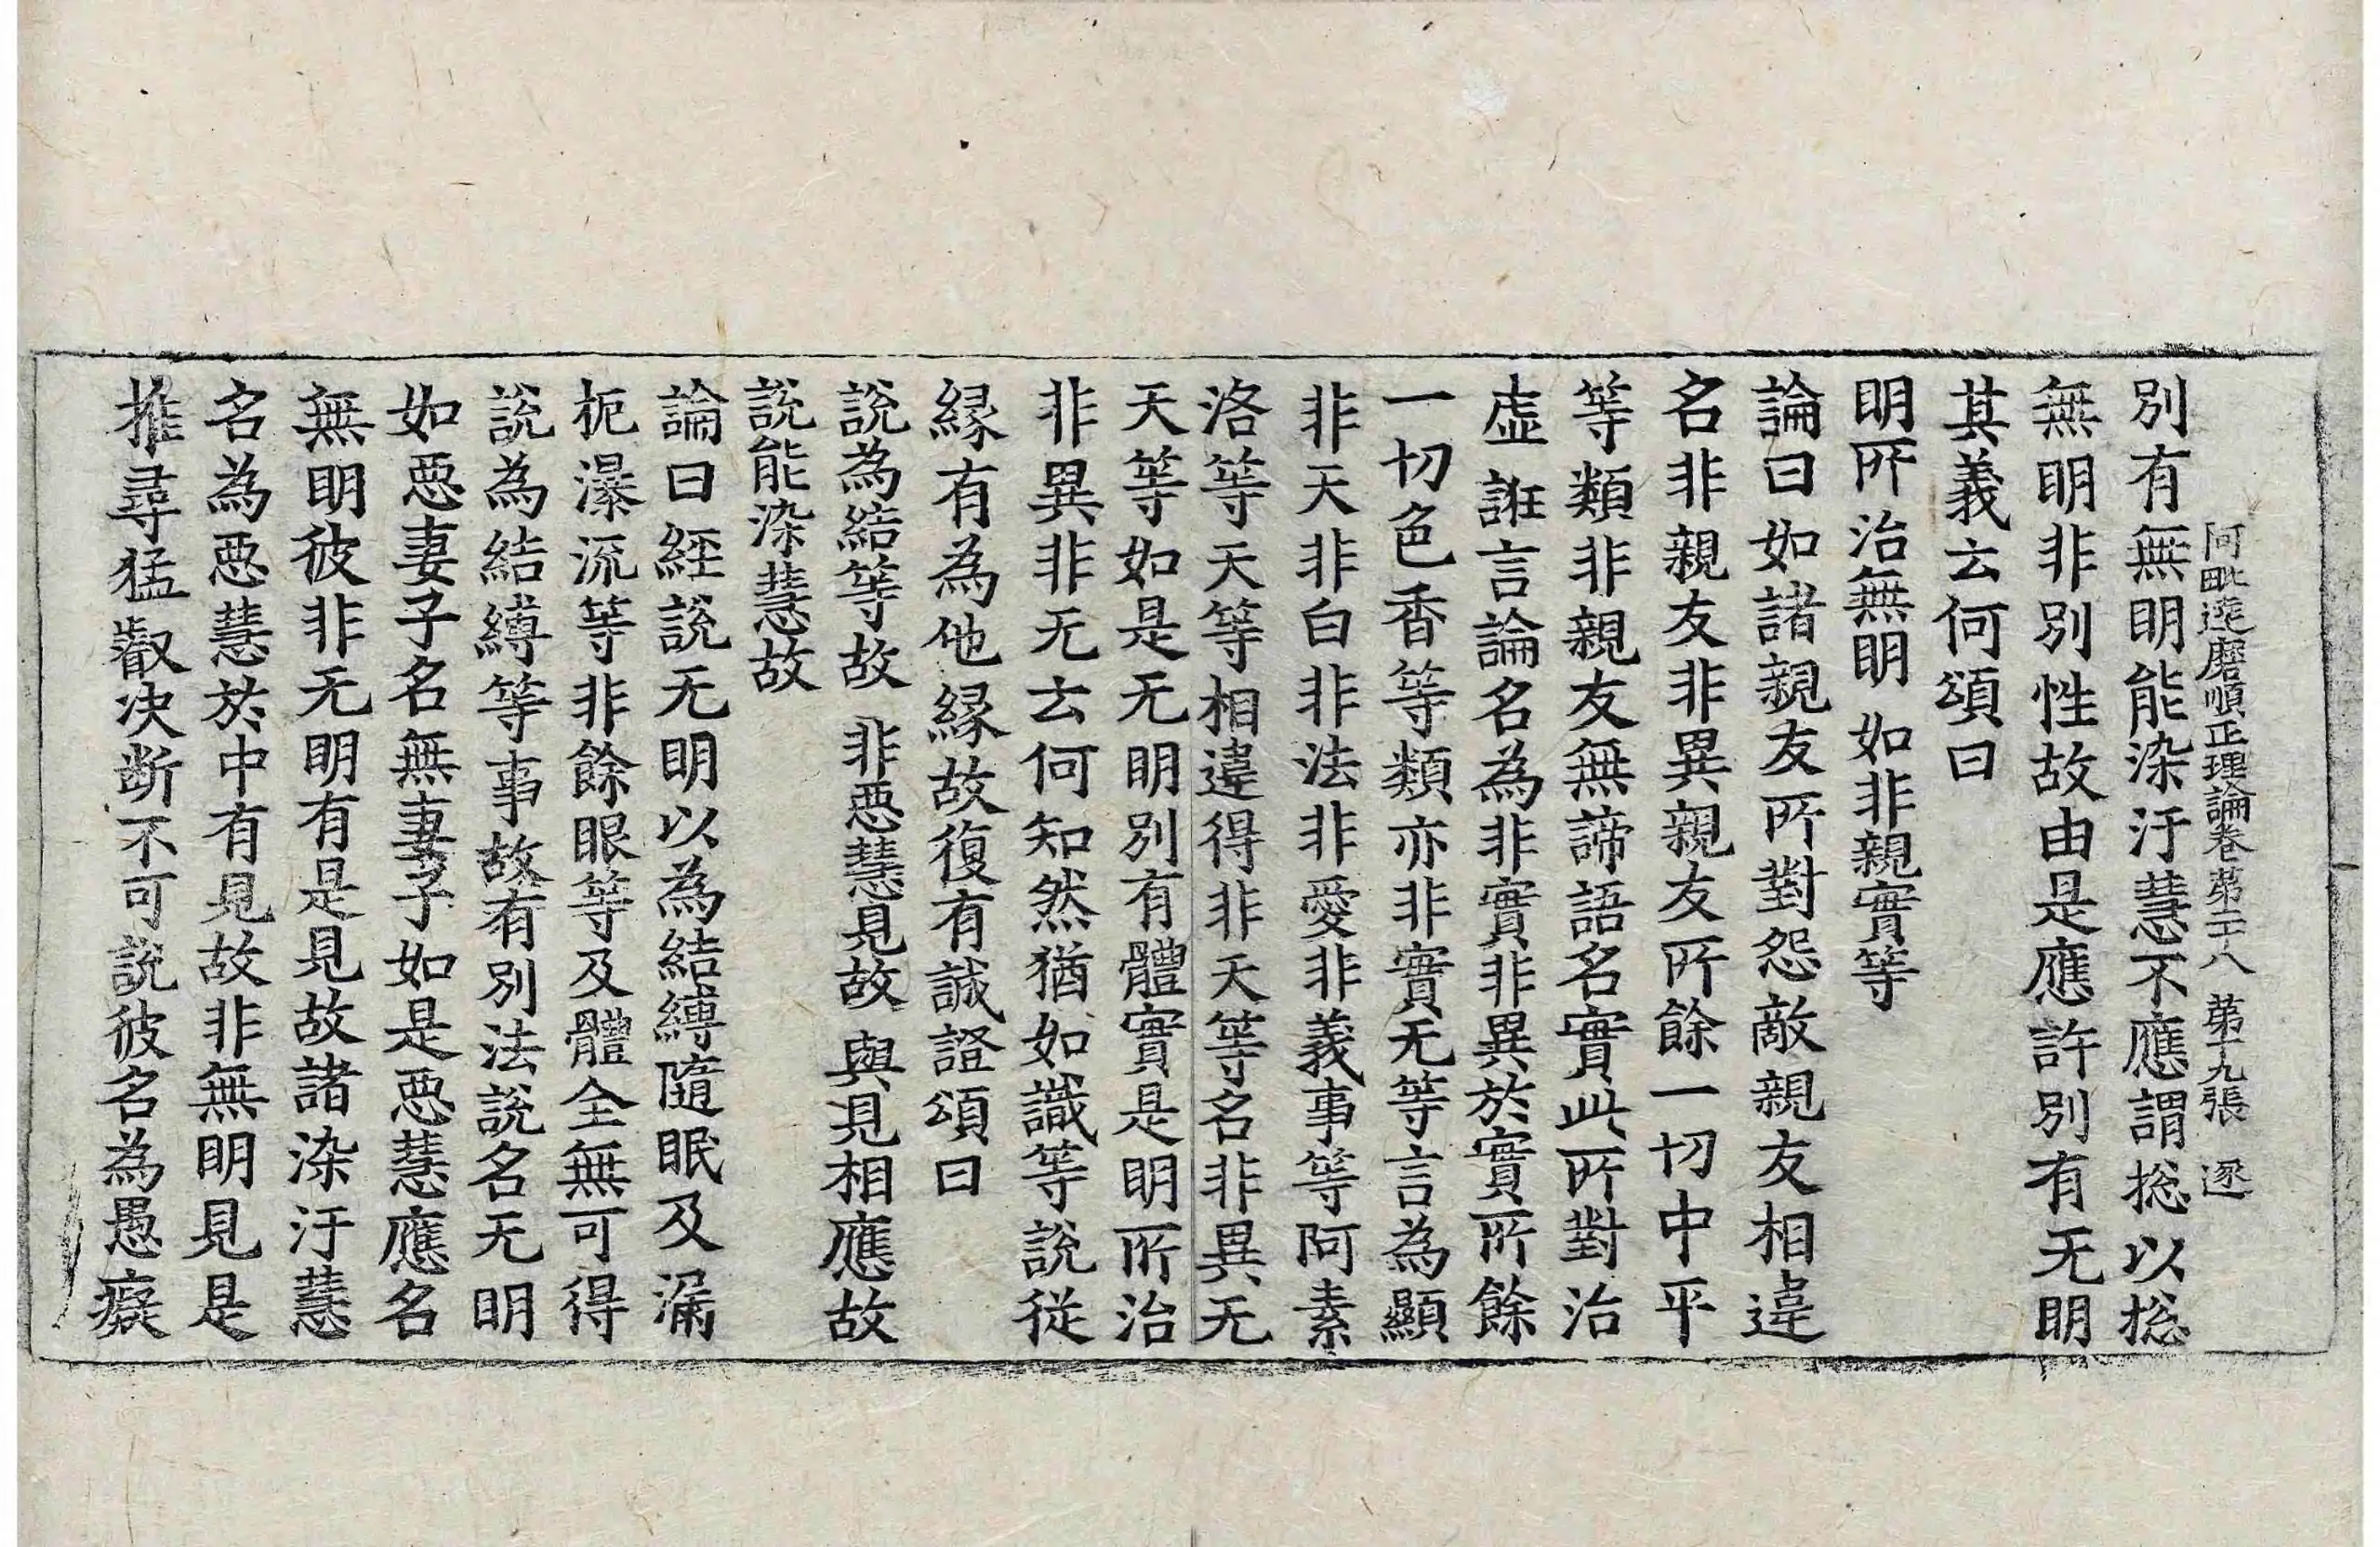 阿毗達磨順正理論卷第二十八 第十九張 逐
別有無明能染汙慧不應謂捴以捴
無明非別性故由是應許別有无明
其義云何頌曰
明所治無明 如非親實等
論曰如諸親友所對怨敵親友相違
名非親友非異親友所餘一切中平
等類非親友無諦語名實此所對治
虛誑言論名為非實非異於實所餘
一切色香等類亦非實无等言為顯
非天非白非法非愛非義事等阿素
洛等天等相違得非天等名非異无
天等如是无明別有體實是明所治
非異非无云何知然猶如識等說從
緣有為他緣故復有誠證頌曰
說為結等故 非惡慧見故 與見相應故
說能染慧故
論曰經說无明以為結縛隨眠及漏
枙瀑流等非餘眼等及體全無可得
說為結縛等事故有別法說名无明
如惡妻子名無妻子如是惡慧應名
無明彼非无明有是見故諸染汙慧
名為惡慧於中有見故非無明見是
推尋猛叡決斷不可說彼名為愚癡